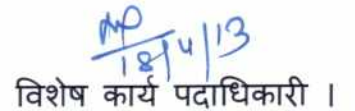 18/4/13
विशेष कार्य पदाधिकारी ।